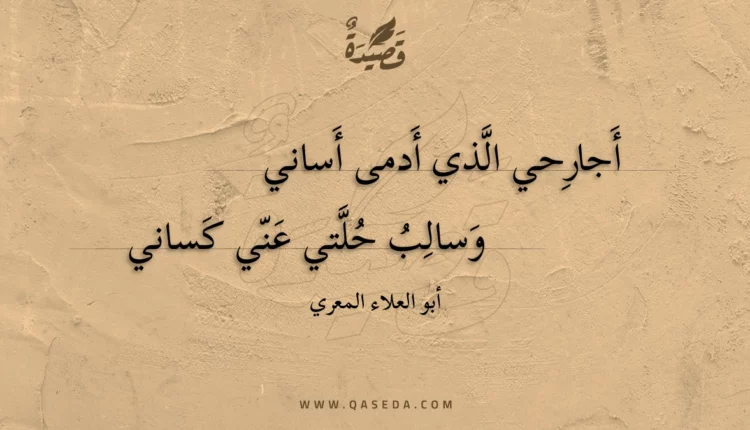 قَصِيْدَةٌ
أَجارِحي الَّذي أَدمى أَساني
وَسالِبُ حُلَّتي عَنّي كَساني
أبو العلاء المعري
WWW.QASEDA.COM